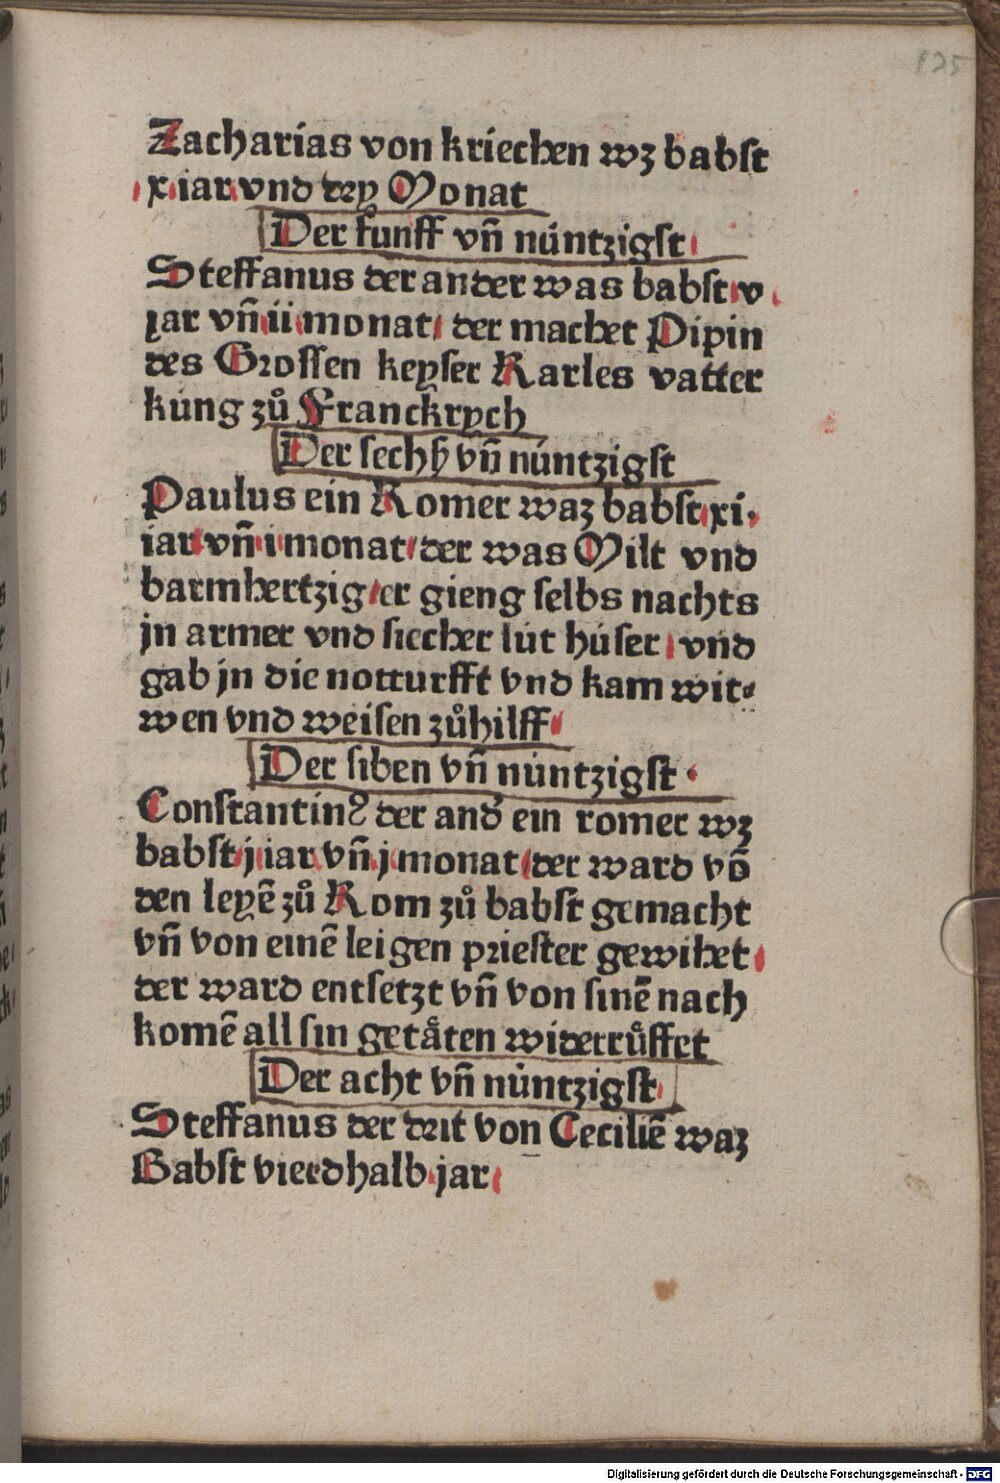 125
Zacharias von kriechen wz babst
x iar vnd drey Monat
Der funff vñ núntzigst
Steffanus der ander was babst v
jar vñ ii monat der machet Pipin
des Grossen keyser Karles vatter
kúng zů Franckrych
Der sechß vñ núntzigst
Paulus ein Romer waz babst xi.
iar vñ i monat der was Milt vnd
barmhertzig er gieng selbs nachts
jn armer vnd siecher lút húser vnd
gab jn die notturfft vnd kam wit⸗
wen vnd weisen zůhilff
Der siben vñ núntzigst
Constantinꝰ der and̕ ein romer wz
babst j iar vñ j monat der ward võ
den leyẽ zů Rom zů babst gemacht
vñ von einẽ leigen priester gewihet
der ward entsetzt vñ von sinẽ nach
komẽ all sin getåten widerrůffet
Der acht vñ núntzigst
Steffanus der drit von Ceciliẽ waz
Babst vierdhalb jar
Digitalisierung gefördert durch die Deutsche Forschungsgemeinschaft - DFG